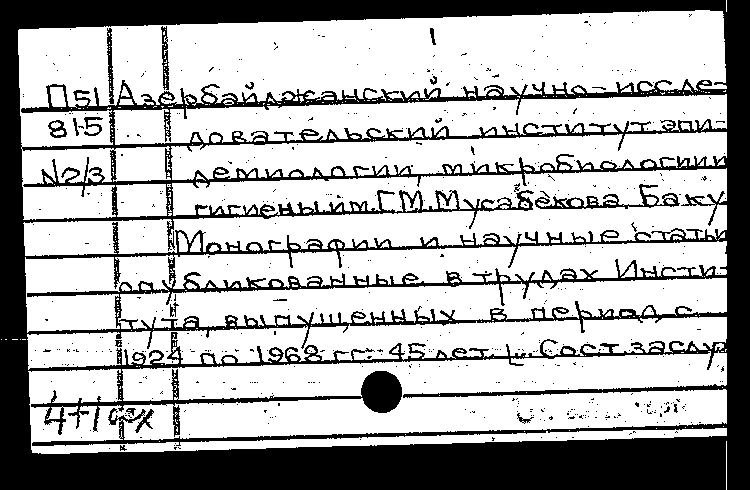 П51 Азербайджанский научно-иссле-
815 довательский институт эпи-
N2/3 демиологии, микробиологии и
гигиены им. Г.М. Мусабекова. Баку
Монографии и научные статьи
опубликованные в трудах Инсти-
тута, выпущенных в период с
1924 по 1968 гг: 45 лет. Сост. заслу
4+1